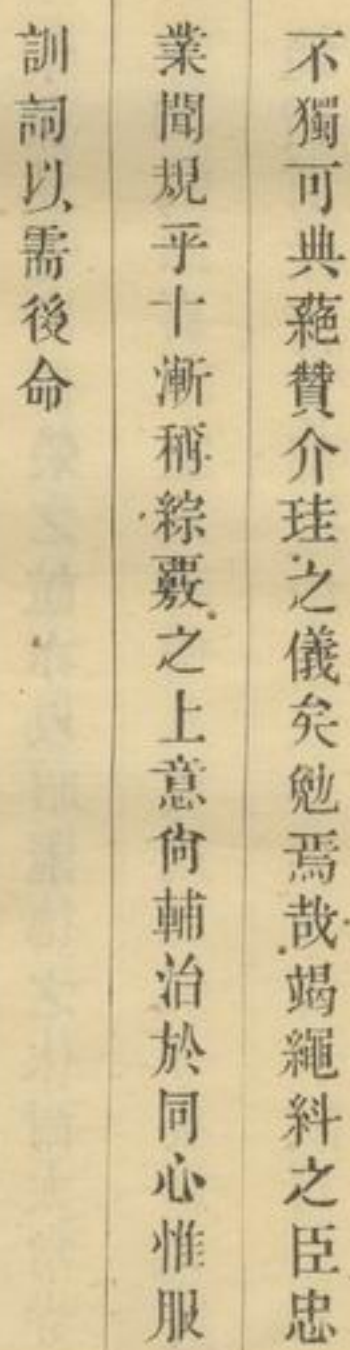 不獨可典蕝贊介珪之儀矣勉焉哉竭繩糾之臣忠
業聞規乎十漸稱綜覈之上意尙輔治於同心惟服
訓詞以需後命